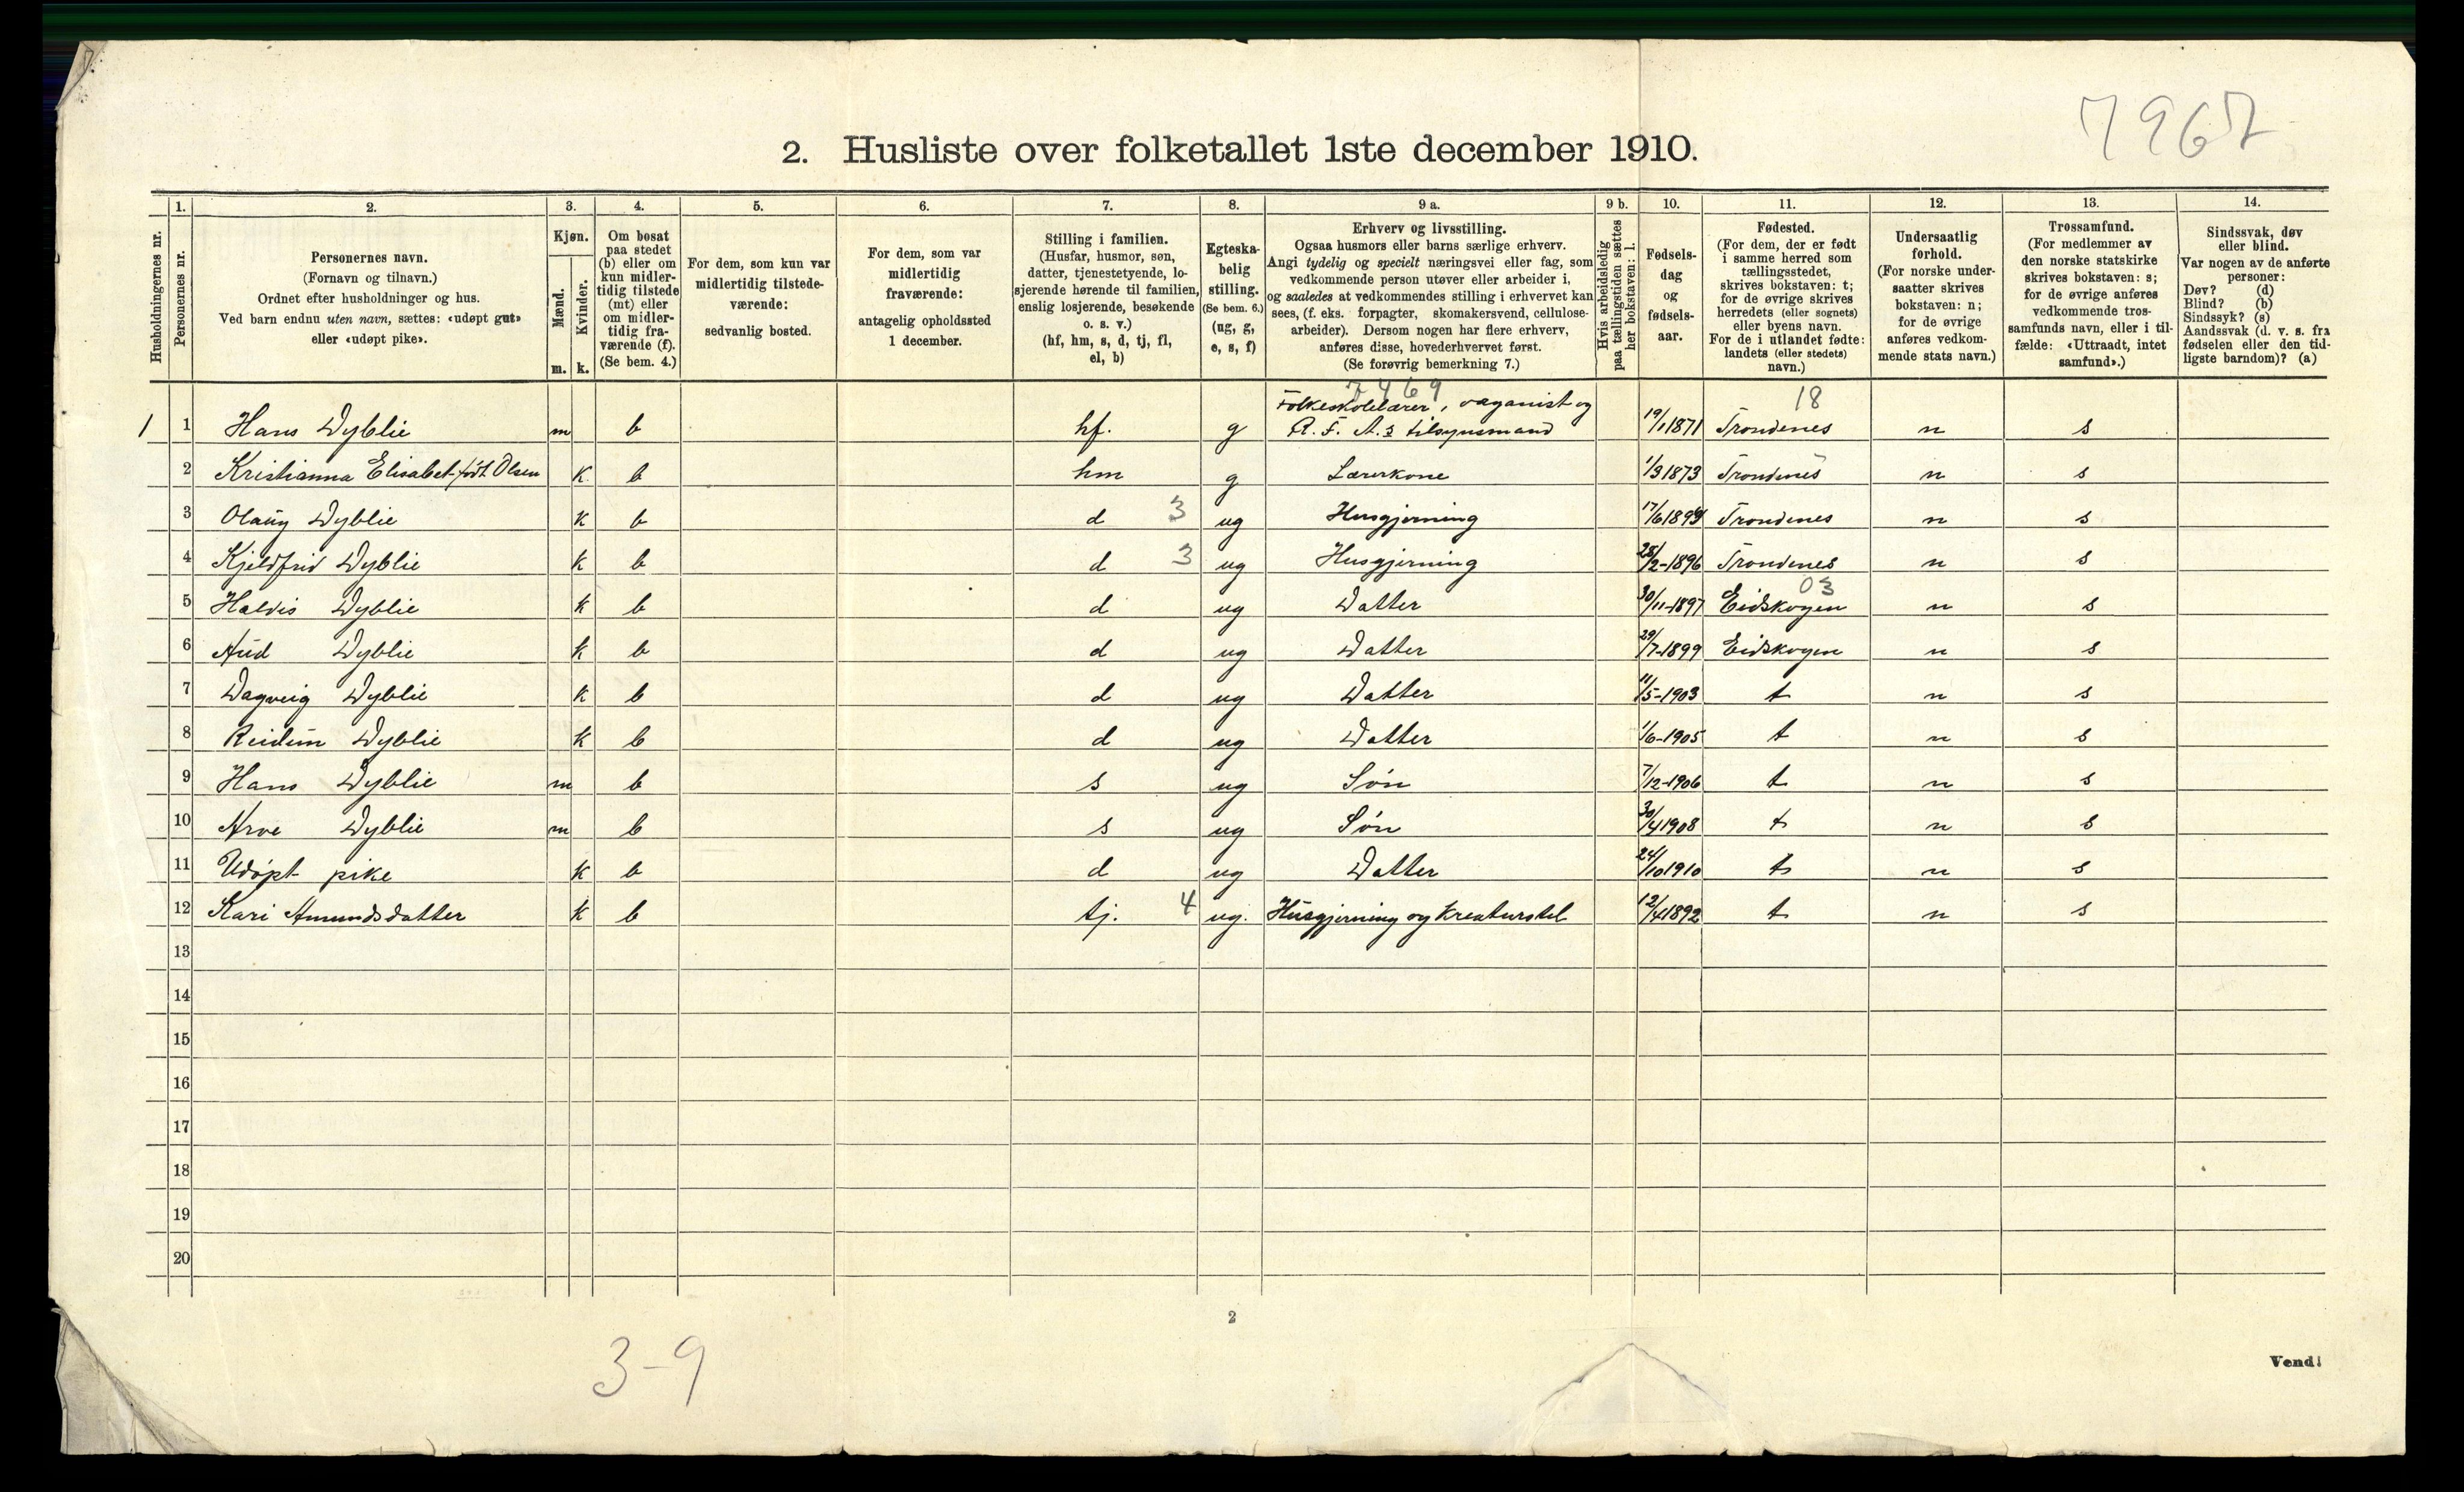 7967
2. Husliste over folketallet 1ste december 1910.
Husholdningernes nr.
1.
Personernes nr.
2.
Personernes navn.
(Fornavn og tilnavn.)
Ordnet efter husholdninger og hus.
Ved barn endnu uten navn, sættes: «udøpt gut»
eller «udøpt pike».
3.
Kjøn.
Mænd.
Kvinder.
m. k.
4.
Om bosat
paa stedet
(b) eller om
kun midler-
tidig tilstede
(mt) eller
om midler-
tidig fra-
værende (f).
(Se bem. 4.)
5.
For dem, som kun var
midlertidig tilstede-
værende:
sedvanlig bosted.
6.
For dem, som var
midlertidig
fraværende:
antagelig opholdssted
1 december.
7.
Stilling i familien.
(Husfar, husmor, søn,
datter, tjenestetyende, lo-
sjerende hørende til familien,
enslig losjerende, besøkende
o. s. v.)
(hf, hm, s, d, tj, fl,
el, b)
8.
Egteska-
belig
stilling.
(Se bem. 6.)
(ug, g,
e, s, f)
9 a.
Erhverv og livsstilling.
Ogsaa husmors eller barns særlige erhverv.
Angi tydelig og specielt næringsvei eller fag, som
vedkommende person utøver eller arbeider i,
og saaledes at vedkommendes stilling i erhvervet kan
sees, (f. eks. forpagter, skomakersvend, cellulose-
arbeider). Dersom nogen har flere erhverv,
anføres disse, hovederhvervet først.
(Se forøvrig bemerkning 7.)
9 b.
Hvis arbeidsledig
paa tællingstiden sættes
her bokstaven: l.
10.
Fødsels-
dag
og
fødsels-
aar.
11.
Fødested.
(For dem, der er født
i samme herred som
tællingsstedet,
skrives bokstaven: t;
for de øvrige skrives
herredets (eller sognets)
eller byens navn.
For de i utlandet fødte:
landets (eller stedets)
navn.)
12.
Undersaatlig
forhold.
(For norske under-
saatter skrives
bokstaven: n;
for de øvrige
anføres vedkom-
mende stats navn.)
13.
Trossamfund.
(For medlemmer av
den norske statskirke
skrives bokstaven: s;
for de øvrige anføres
vedkommende tros-
samfunds navn, eller i til-
fælde: «Uttraadt, intet
samfund».)
14.
Sindssvak, døv
eller blind.
Var nogen av de anførte
personer:
Døv? (d)
Blind? (b)
Sindssyk? (s)
Aandssvak (d. v. s. fra
fødselen eller den tid-
ligste barndom)? (a)
7469 18
1 1 Hans Dyblie m b hf. g Folkeskolelærer, organist og R. F. A.s tilsynsmand 19/1 1871 Trondenes n s
2 Kristianna Elisabet født Olsen k b hm g Lærerkone 1/3 1873 Trondenes n s
3 Olaug Dyblie k b d 3 ug Husgjerning 17/6 Trondenes n s
4 Kjeldfrid Dyblie k b d 3 ug Husgjerning 28/2-1896 Trondenes n s
03
5 Haldis Dyblie k b d ug Datter 30/11-1897 Eidskogen n s
6 Aud Dyblie k b d ug Datter 29/7-1899 Eidskogen n s
7 Dagveig Dyblie k b d ug Datter 11/5-1903 t n s
8 Reidun Dyblie k b d ug Datter 1/6-1905 t n s
9 Hans Dyblie m b s ug Søn 7/12-1906 t n s
10 Arve Dyblie m b s ug Søn 30/4 1908 t n s
11 Udøpt pike k b d ug Datter 24/10 1910 t n s
12 Kari Amundsdatter k b tj. 4 ug. Husgjerning og kreaturstel 12/4 1892 t n s
13
14
15
16
17
18
19
20
2
3-9
Vend!